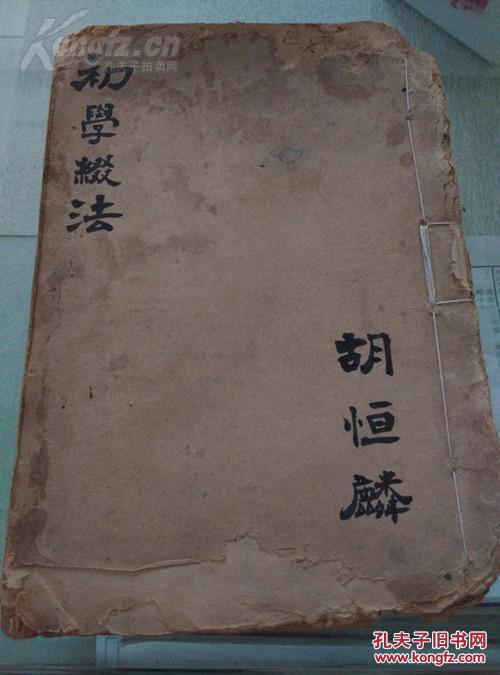 Kongfz.cn
孔夫子拍卖网
初學綴法
胡恒麟
孔夫子旧书网
www.kongfz.com